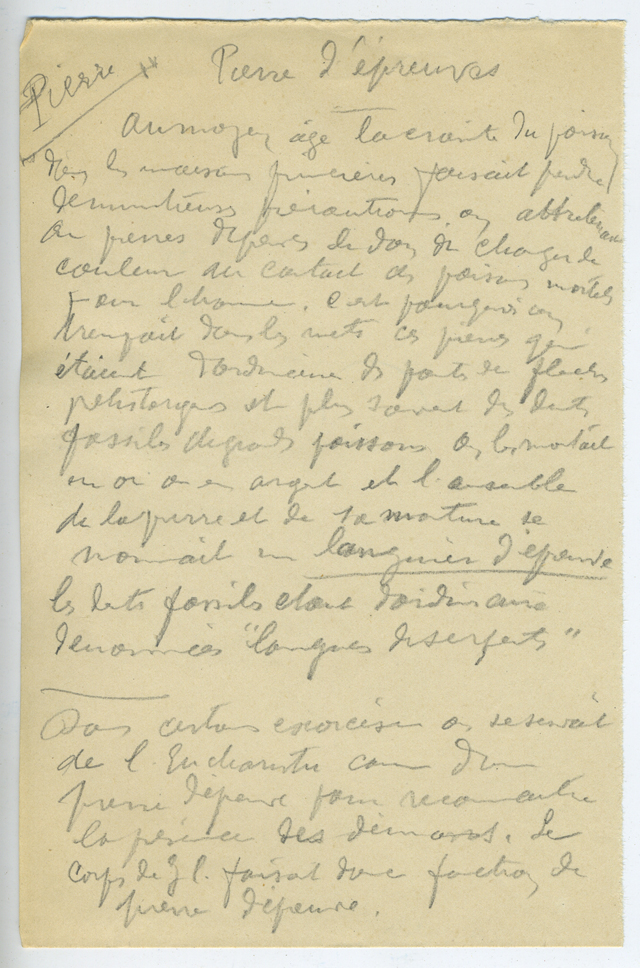 Pierre
Pierre d'épreuves
Au moyen âge la crainte du poison
dans les maisons princières faisait prendre
de minutieuses précautions on attribuait
au pierres d'épreuves le don de changer de
couleur au contact des poisons mortels
pour l'homme. c'est pourquoi on
trempait dans les mets ces pierres qui
étaient d'ordinaire des pointes de flèches
préhistoriques et plus souvent des dents
fossiles de grands poissons on les montait
en or ou en argent et l'ensemble
de la pierre et de sa monture se
nommait un languier d'épreuve
les dents fossiles étant d'ordinaire
dénommées "langues de serpents"
Dans certains exorcismes on se servait
de l'Eucharistie comme d'une
pierre d'épreuve pour reconnaitre
la présence des démons. Le
corps de J C. faisait donc fonction de
pierre d'épreuve.